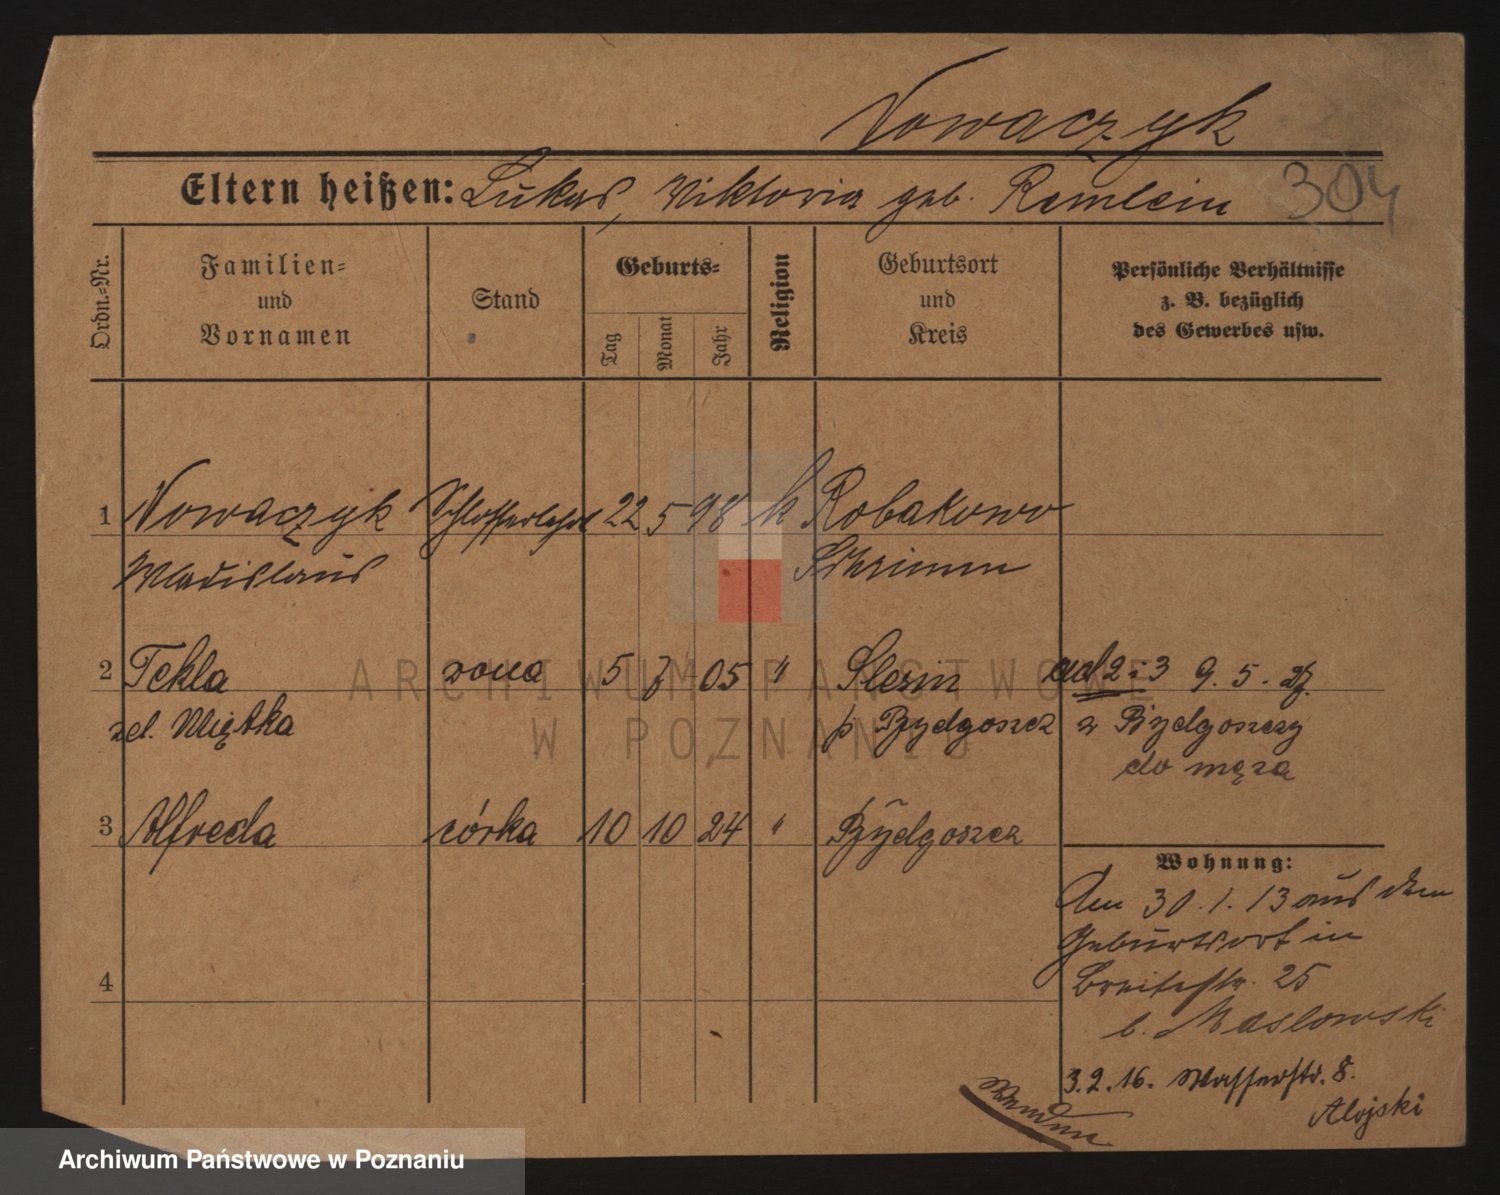 Nowaczyk
Eltern heißen: Lukas, Viktoria geb. Remlein 304
Ordn.=Nr.
Familien=
und
Vornamen
Stand
Geburts=
Tag
Monat
Jahr
Religion
Geburtsort
und
Kreis
Persönliche Verhältnisse
z. B. bezüglich
des Gewerbes usw.
1 Nowaczyk Schlosserlehrl 22 5 98 k Robakowo
Wladislaus Schrimm
2 Tekla żona 5 05 " Ślesin ad 2 i 3 9. 5. 27.
zd. Miętka p Bydgoszcz z Bydgoszczy
do męża
3 Alfreda córka 10 10 24 " Bydgoszcz
Wohnung:
Am 30. 1. 13 aus dem
Geburtsort in
Breitestr. 25
b. Maslowski
4
3. 2. 16. Wasserstr. 8.
Alojski
Wenden
ARCHIWUM PAŃSTWOWE
W POZNANIU
Archiwum Państwowe w Poznaniu